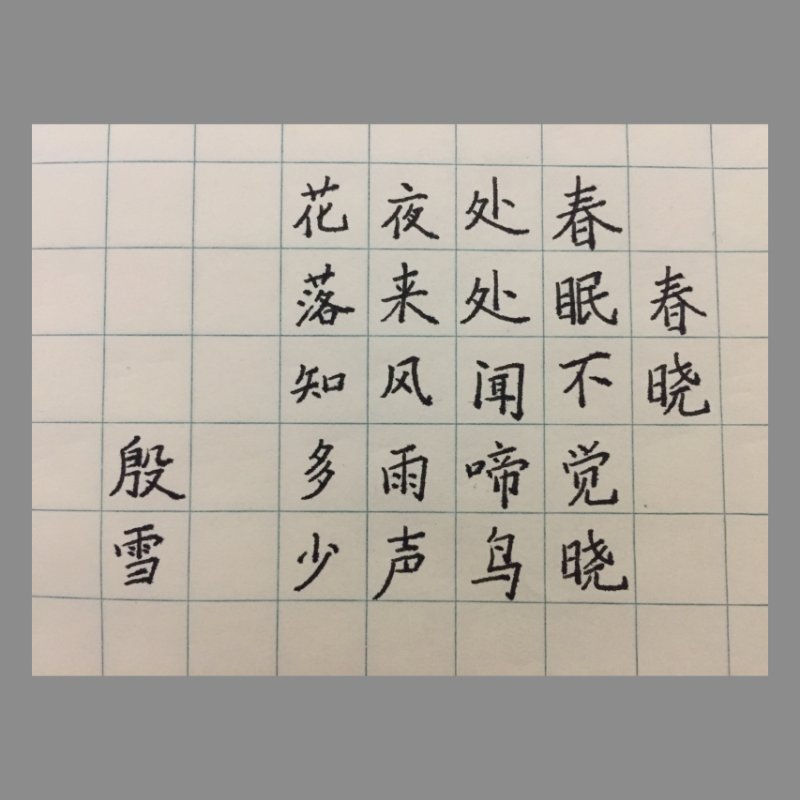 春晓
春眠不觉晓
处处闻啼鸟
夜来风雨声
花落知多少
殷雪